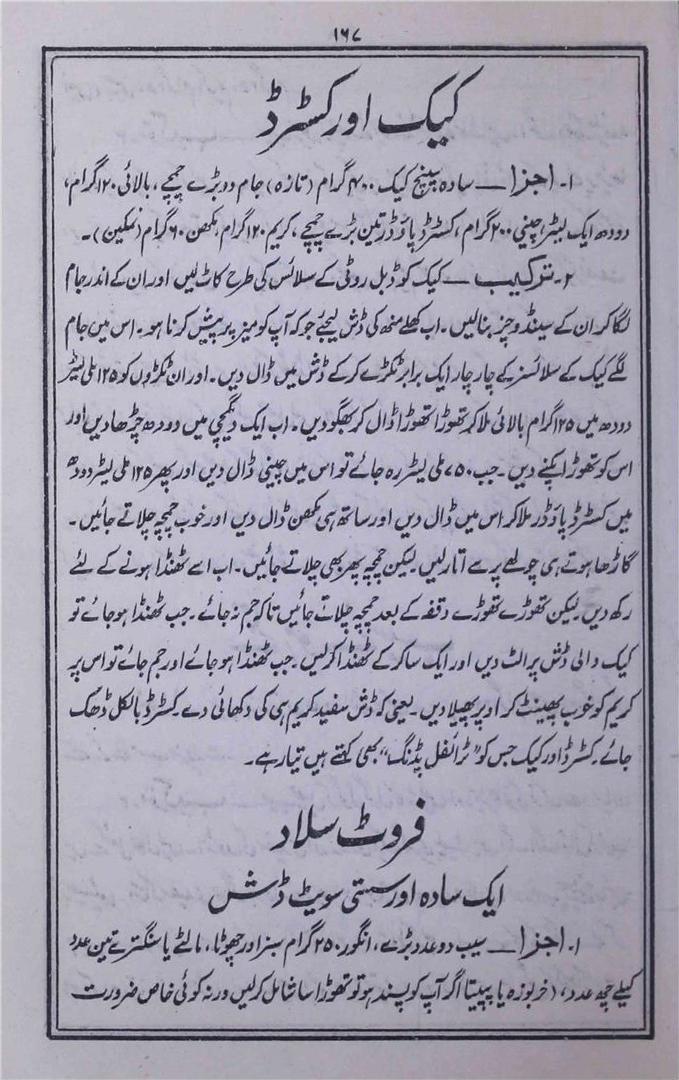 ۱۶۷
کیک اور کسٹرڈ
۱۔ اجزا — سادہ سپنج کیک ۴۰۰ گرام (تازہ) جام دو بڑے چمچے، بالائی ۱۲۰ گرام،
دودھ ایک لیٹر، چینی ۲۰۰ گرام، کسٹرڈ پاؤڈر تین بڑے چمچے، کریم ۱۲۰ گرام، مکھن ۶۰ گرام (نمکین)۔
۲۔ ترکیب — کیک کو ڈبل روٹی کے سلائس کی طرح کاٹ لیں اور ان کے اندر جام
لگا کر ان کے سینڈوچز بنالیں۔ اب کھلے منھ کی ڈش لیجئے جو کہ آپ کو میز پر پیش کرنا ہو۔ اس میں جام
لگے کیک کے سلائسز کے چار چار ایک برابر ٹکڑے کر کے ڈش میں ڈال دیں۔ اور ان ٹکڑوں کو ۱۲۵ ملی لیٹر
دودھ میں ۱۲۵ گرام بالائی ملا کر تھوڑا تھوڑا ڈال کر بھگو دیں۔ اب ایک دیگچی میں دودھ چڑھا دیں اور
اس کو تھوڑا پکنے دیں۔ جب ۷۵۰ ملی لیٹر رہ جائے تو اس میں چینی ڈال دیں اور پھر ۱۲۵ ملی لیٹر دودھ
میں کسٹرڈ پاؤڈر ملا کر اس میں ڈال دیں اور ساتھ ہی مکھن ڈال دیں اور خوب چمچہ چلاتے جائیں۔
گاڑھا ہوتے ہی چولھے پر سے اتار لیں لیکن چمچہ پھر بھی چلاتے جائیں۔ اب اسے ٹھنڈا ہونے کے لئے
رکھ دیں۔ لیکن تھوڑے تھوڑے وقفہ کے بعد چمچہ چلاتے جائیں تاکہ جم نہ جائے۔ جب ٹھنڈا ہو جائے تو
کیک والی ڈش پر الٹ دیں اور ایک سا کر کے ٹھنڈا کرلیں۔ جب ٹھنڈا ہو جائے اور جم جائے تو اس پر
کریم کو خوب پھینٹ کر اوپر پھیلا دیں۔ یعنی کہ ڈش سفید کریم ہی کی دکھائی دے۔ کسٹرڈ بالکل ڈھک
جائے۔ کسٹرڈ اور کیک جس کو "ٹرائفل پڈنگ" بھی کہتے ہیں تیار ہے۔
فروٹ سلاد
ایک سادہ اور سستی سویٹ ڈش
۱۔ اجزا — سیب دو عدد بڑے، انگور ۲۵۰ گرام سبز اور چھوٹا، مالٹے یا سنگترے تین عدد
کیلے چھ عدد، (خربوزہ یا پپیتا اگر آپ کو پسند ہو تو تھوڑا سا شامل کرلیں ورنہ کوئی خاص ضرورت